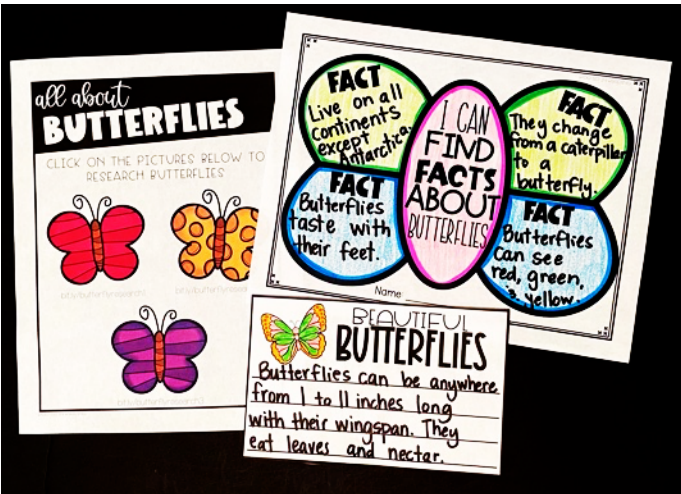 all about
BUTTERFLIES
CLICK ON THE PICTURES BELOW TO
RESEARCH BUTTERFLIES
FACT
Live on all
continents
except
Antarctica.
FACT
They change
from a caterpillar
to a
butterfly.
I CAN
FIND
FACTS
ABOUT
BUTTERFLIES
FACT
Butterflies
taste with
their feet.
FACT
Butterflies
can see
red, green,
& yellow.
Name:
BEAUTIFUL
BUTTERFLIES
Butterflies can be anywhere
from 1 to 11 inches long
with their wingspan. They
eat leaves and nectar.